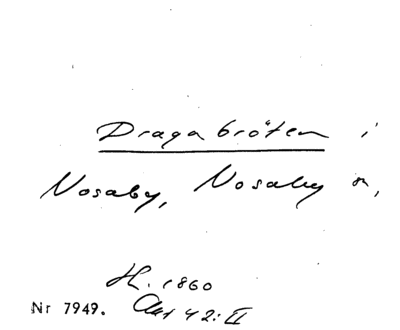 Dragabröten i
Nosaby, Nosaby sn,
H. 1860
Nr 7949. Akt 42: II